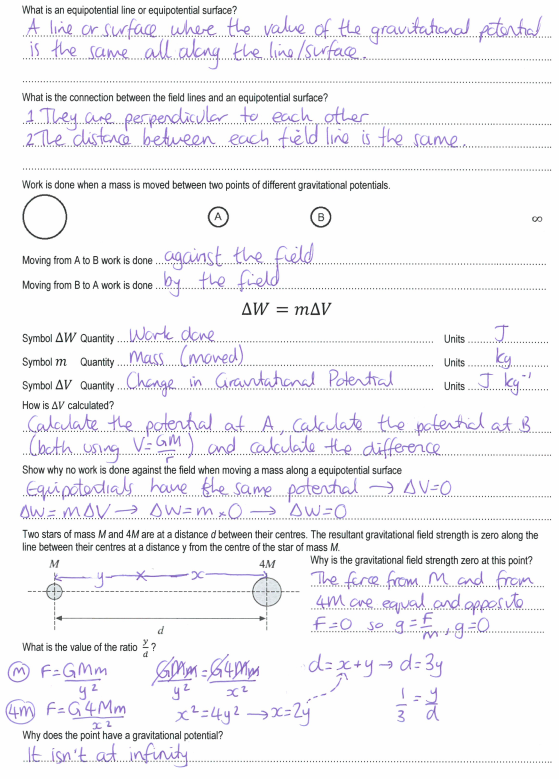 What is an equipotential line or equipotential surface?
A line or surface where the value of the gravitational potential
is the same all along the line/surface.
What is the connection between the field lines and an equipotential surface?
1 They are perpendicular to each other
2 The distance between each field line is the same.
Work is done when a mass is moved between two points of different gravitational potentials.
A B ∞
Moving from A to B work is done against the field
Moving from B to A work is done by the field
ΔW = mΔV
Symbol ΔW Quantity Work done Units J
Symbol m Quantity Mass (moved) Units kg
Symbol ΔV Quantity Change in Gravitational Potential Units J kg⁻¹
How is ΔV calculated?
Calculate the potential at A, calculate the potential at B
(both using V=GM/r) and calculate the difference
Show why no work is done against the field when moving a mass along a equipotential surface
Equipotentials have the same potential → ΔV=0
ΔW=mΔV → ΔW=m×0 → ΔW=0
Two stars of mass M and 4M are at a distance d between their centres. The resultant gravitational field strength is zero along the
line between their centres at a distance y from the centre of the star of mass M.
M 4M
y x
d
Why is the gravitational field strength zero at this point?
The force from M and from
4M are equal and opposite
F=0 so g=F/m, g=0
What is the value of the ratio y/d?
M F=GMm/y² GMm/y²=G4Mm/x² d=x+y → d=3y
4M F=G4Mm/x² x²=4y² → x=2y 1/3=y/d
Why does the point have a gravitational potential?
It isn't at infinity